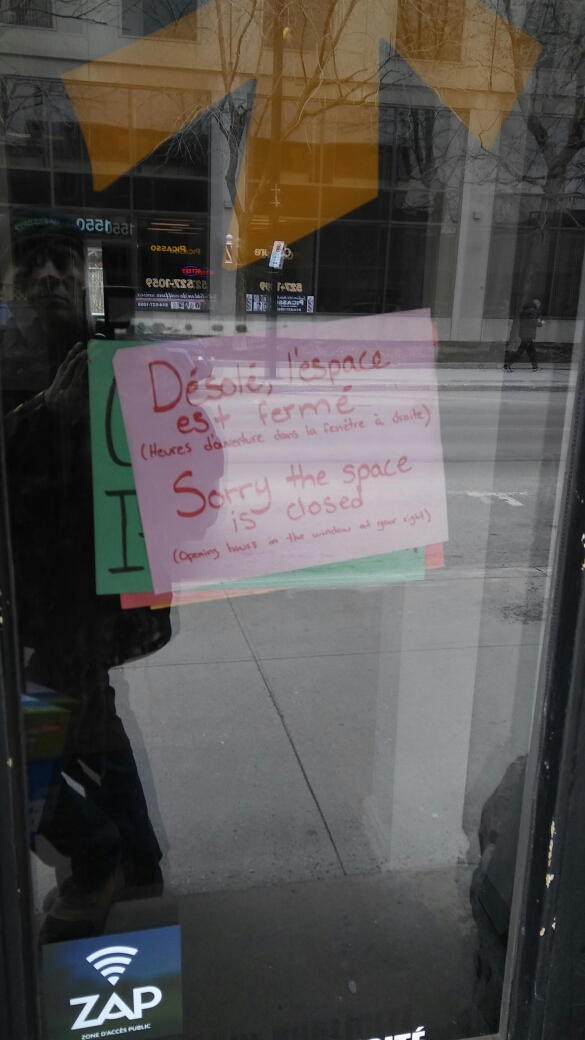 1550
PICASSO
527-1059
PICASSO
Désolé, l'espace
est fermé
(Heures d'ouverture dans la fenêtre à droite)
Sorry the space
is closed
(Opening hours in the window at your right)
ZAP
ZONE D'ACCÈS PUBLIC